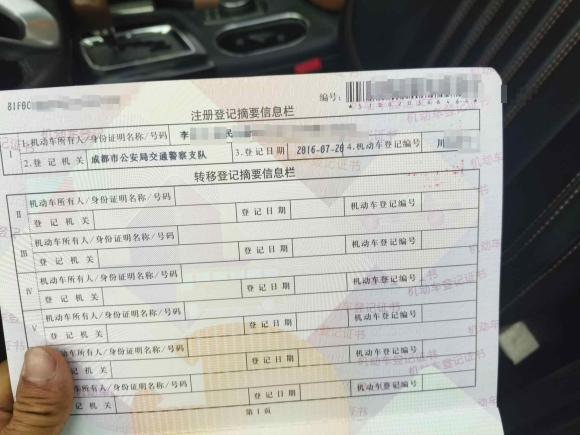 81FBC
编号:
注册登记摘要信息栏
I 1.机动车所有人/身份证明名称/号码 李 民
2.登记机关 成都市公安局交通警察支队 3.登记日期 2016-07-20 4.机动车登记编号 川
转移登记摘要信息栏
II 机动车所有人/身份证明名称/号码
登记机关 登记日期 机动车登记编号
III 机动车所有人/身份证明名称/号码
登记机关 登记日期 机动车登记编号
IV 机动车所有人/身份证明名称/号码
登记机关 登记日期 机动车登记编号
V 机动车所有人/身份证明名称/号码
登记机关 登记日期 机动车登记编号
机动车所有人/身份证明名称/号码
登记机关 登记日期 机动车登记编号
机动车所有人/身份证明名称/号码
登记机关 登记日期 机动车登记编号
第1页